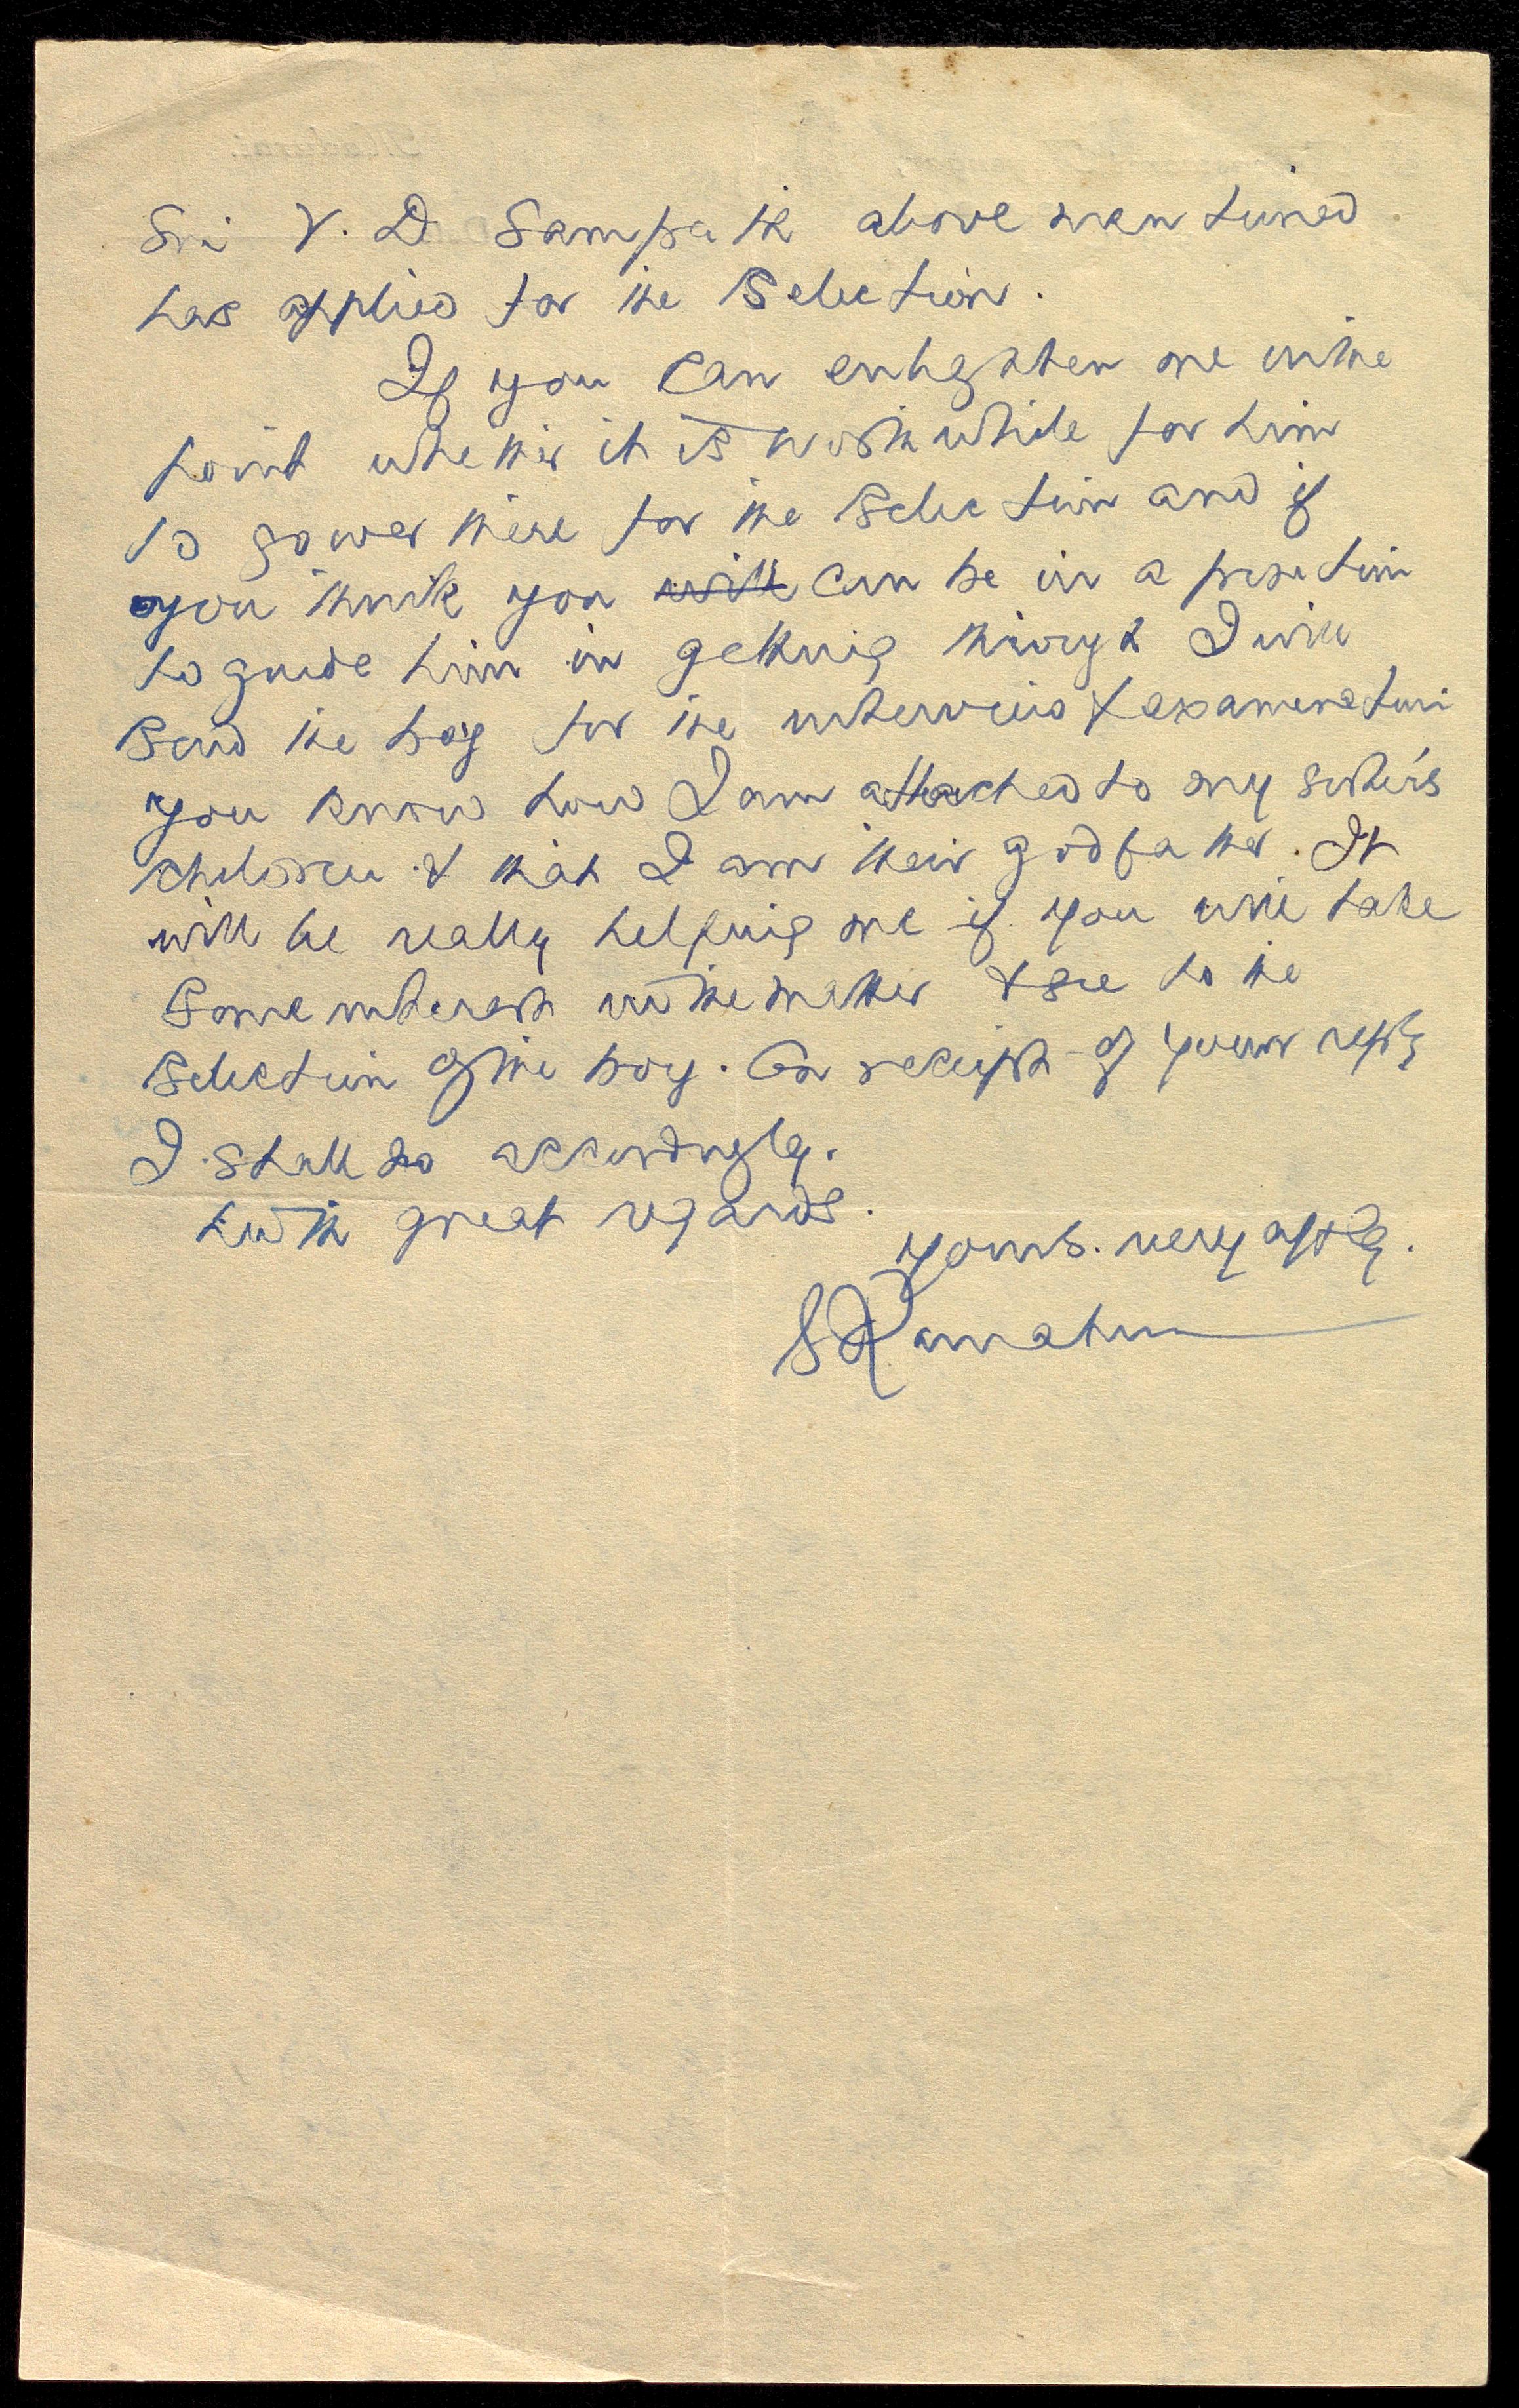 Sri V. D Sampath above mentioned
has applied for the Selection.
If you can enlighten me in the
point whether it is worth while for him
to go over there for the Selection and if
you think you will can be in a position
to guide him in getting through I will
send the boy for the interview & examination
you know how I am attached to my sister's
children & that I am their godfather. It
will be really helping me if you will take
some interest in the matter & see to the
selection of the boy. On receipt of your reply
I shall do accordingly.
With great regards.
yours. very aftly.